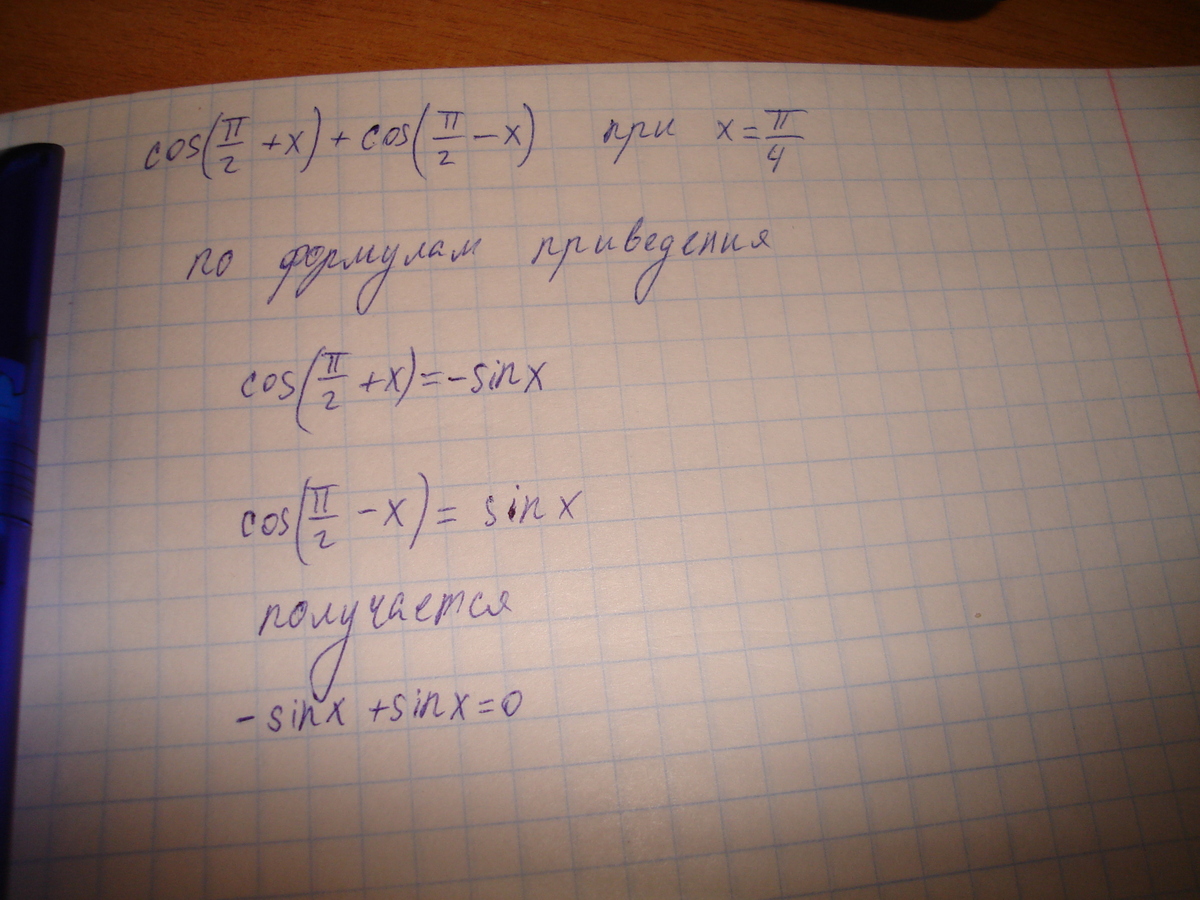 cos(π/2 + x) + cos(π/2 − x) при x = π/4
по формулам приведения
cos(π/2 + x) = − sin x
cos(π/2 − x) = sin x
получается
− sin x + sin x = 0